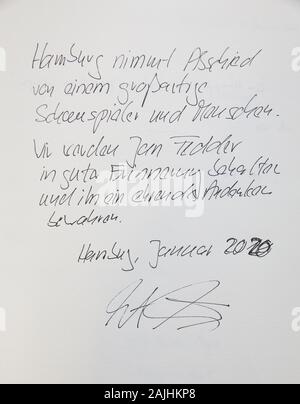 Hamburg nimmt Abschied
von einem großartigen
Schauspieler und Menschen.
Wir werden Jan Fedder
in guter Erinnerung behalten
und ihm ein ehrendes Andenken
bewahren.
Hamburg, Januar 2020
alamy
Image ID: 2AJHKP8
www.alamy.com